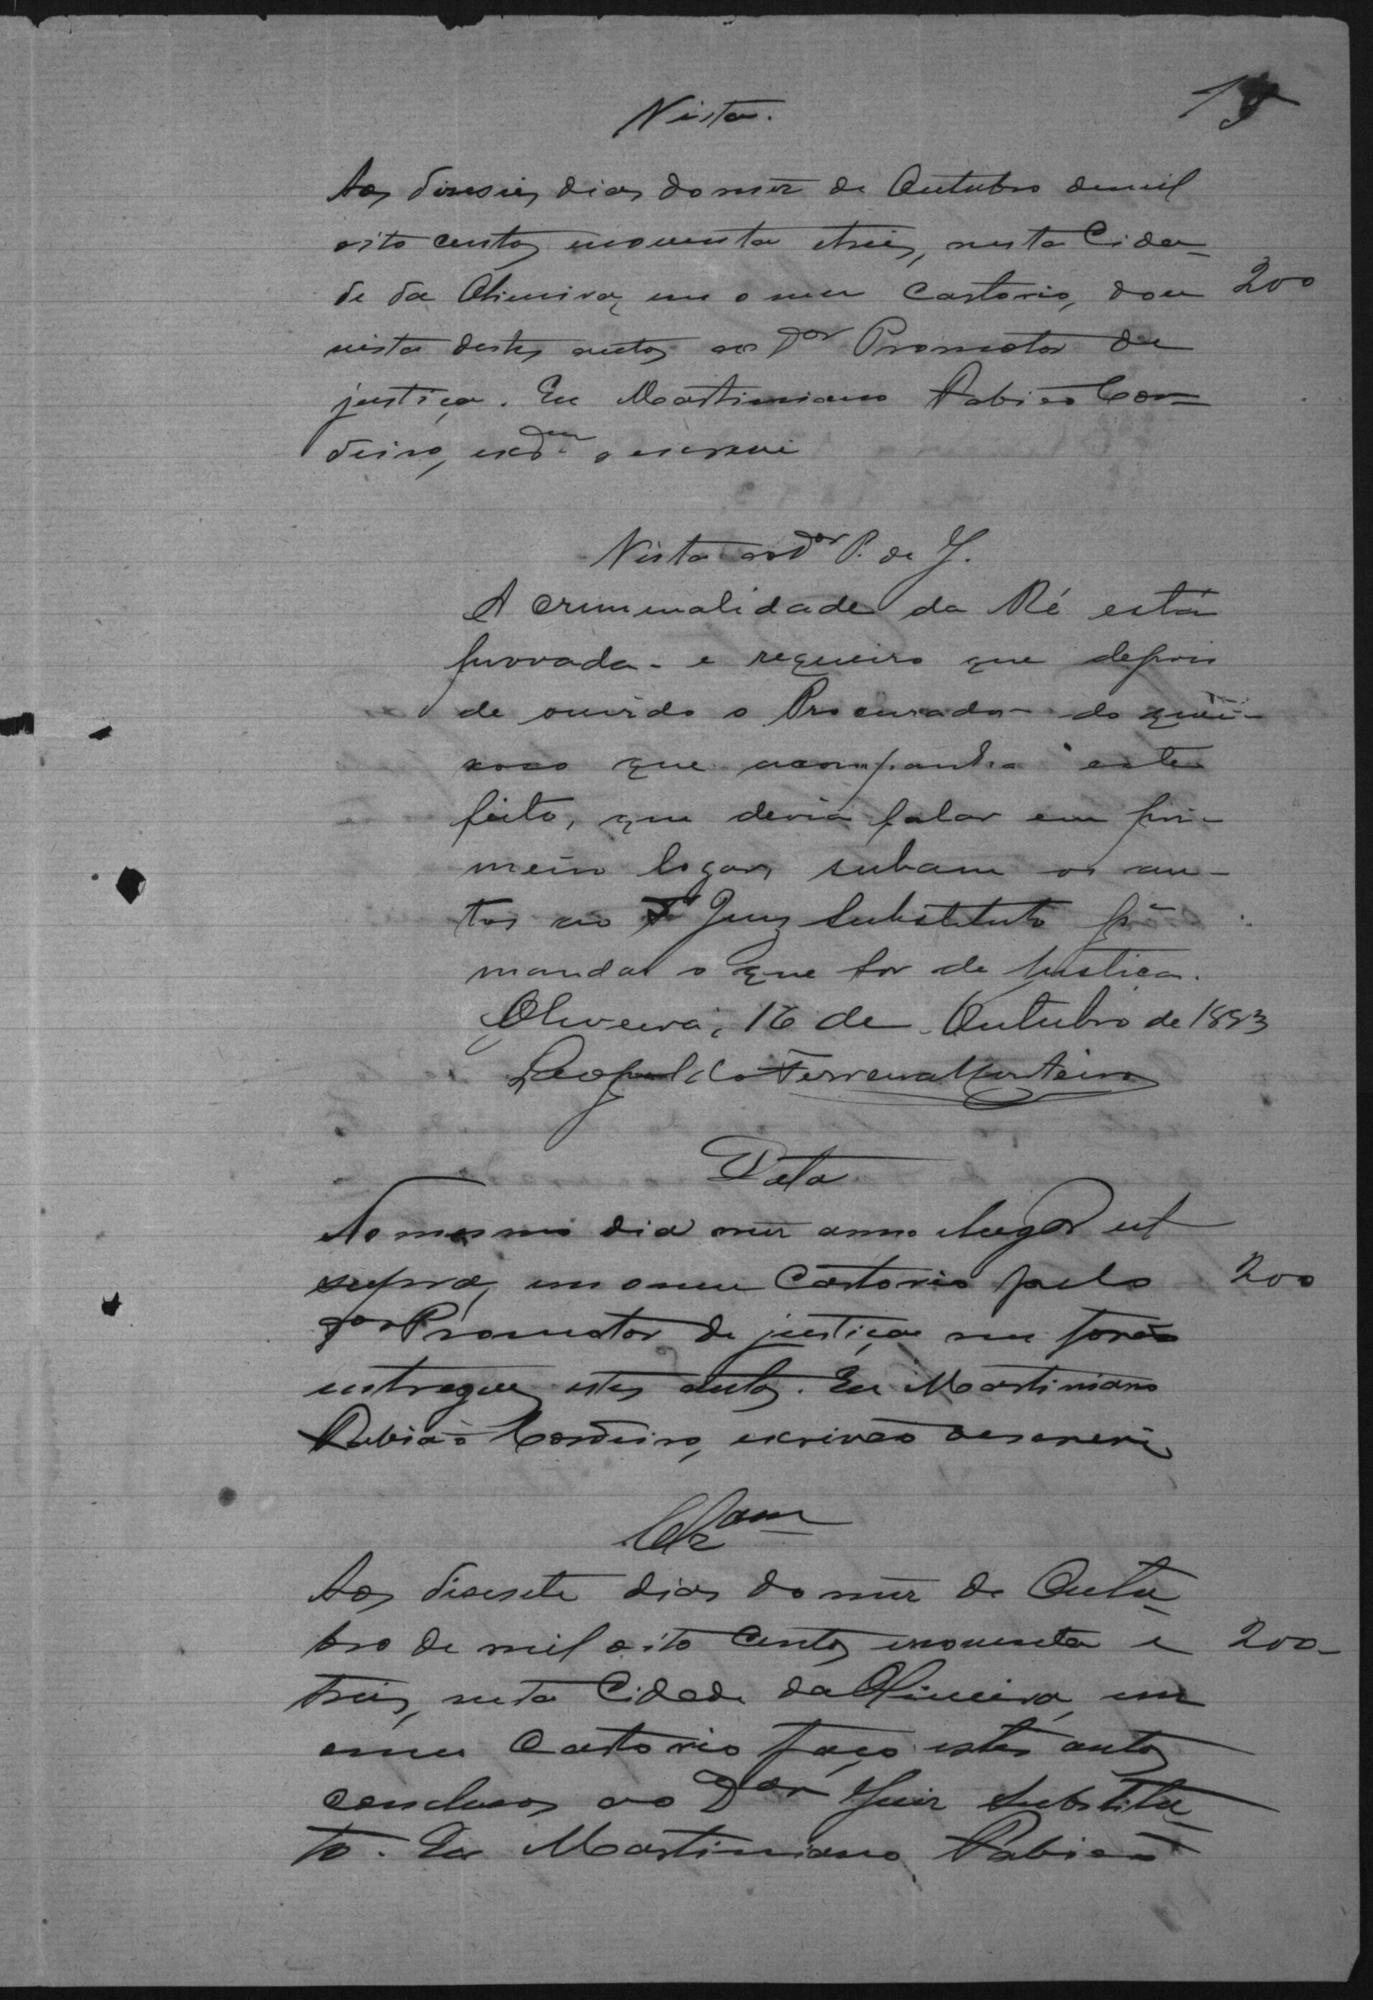 Vista.
Aos diseseis dias do mez de Outubro de mil
oito centos noventa e treis, nesta Cida-
de da Oliveira, em o meu Cartorio, dou 200
vista destes autos ao Dor Promotor da
justiça. Eu Martiniano Rabião Cor-
deiro, escram o escrevi
Vista ao Dor P. de J.
A criminalidade da Ré está
provada - e requeiro que depois
de ouvido o Procurador do quei-
xoso que acompanha este
feito, que devia falar em pri-
meiro logar, subam os au-
tos ao Dr Juiz Substituto pa
mandar o que for de justiça.
Oliveira, 16 de Outubro de 1893
Leopoldo Ferreira Monteiro
Data
No mesmo dia mez anno e lugar ut
supra, em o meu Cartorio pelo 200
Dor Promotor de justiça me forão
entregues estes autos. Eu Martiniano
Rabião Cordeiro, escrivão o escrevi
Clzam
Aos disesete dias do mez de Outu-
bro de mil oito centos noventa e 200
treis, nesta Cidade da Oliveira, em
o meu Cartorio faço estes autos
conclusos ao Dor Juiz Substitu-
to. Eu Martiniano Rabião